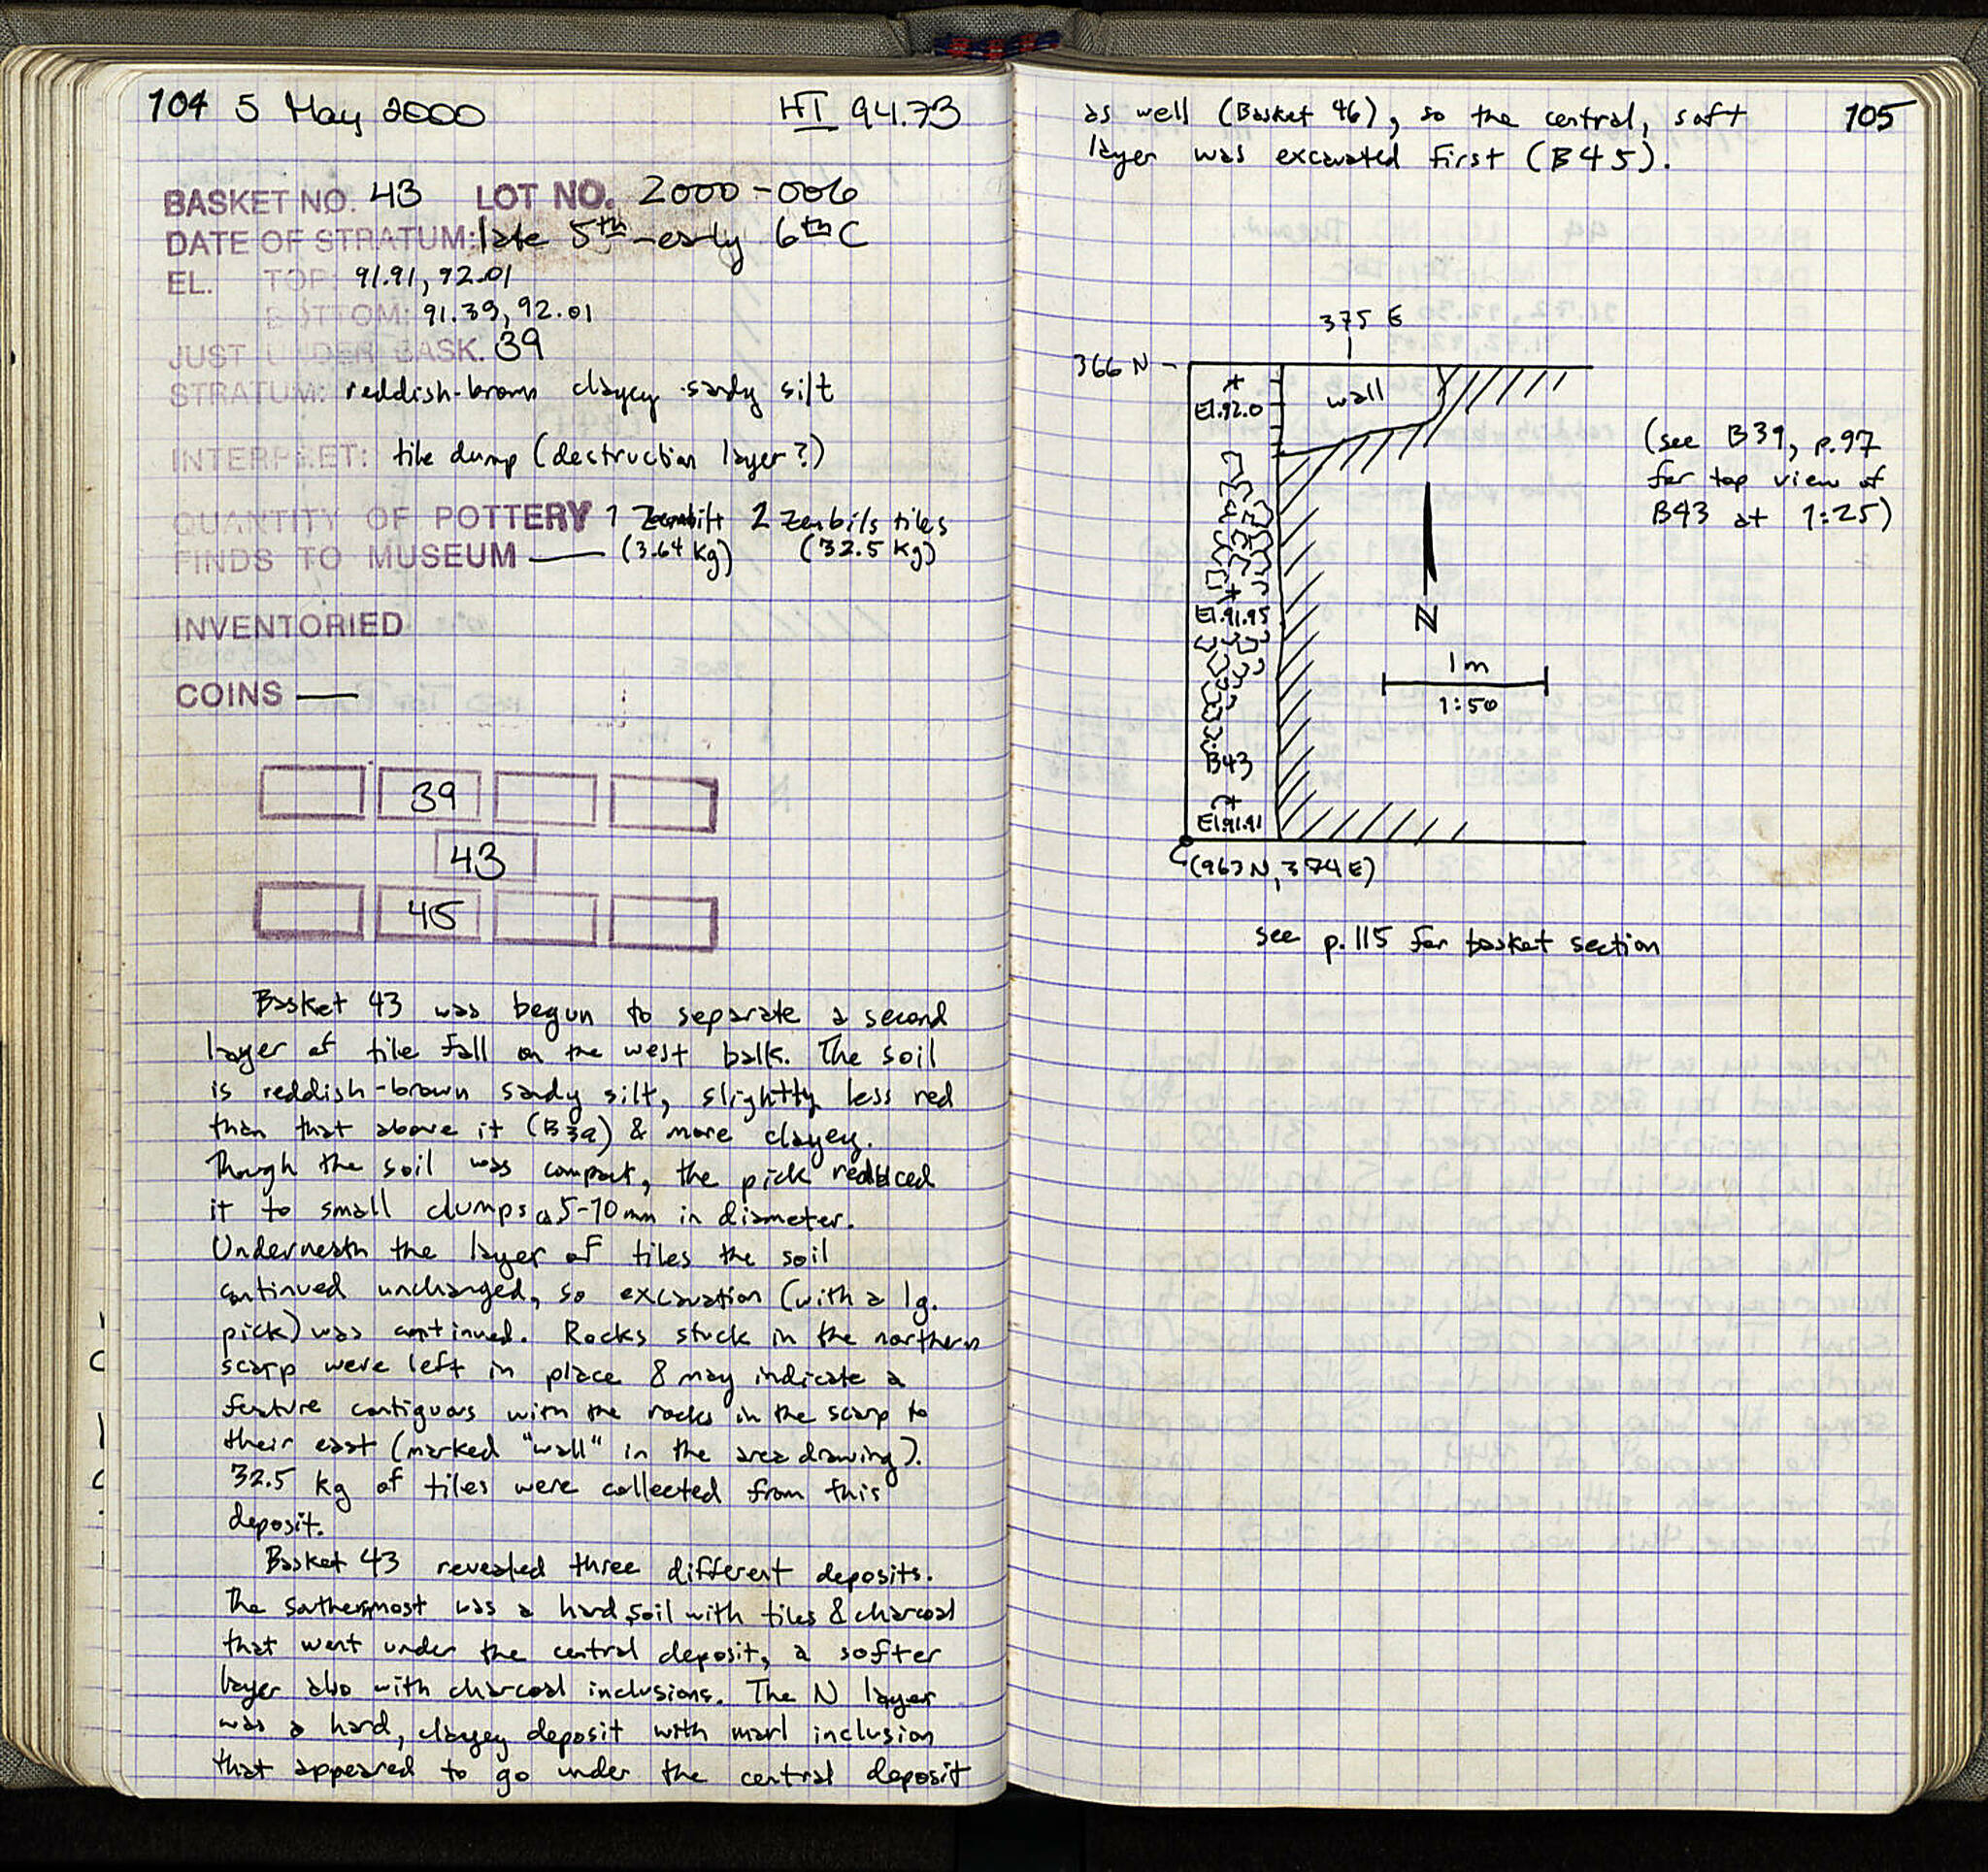 104 5 May 2000 HI 94.73
BASKET NO. 43 LOT NO. 2000-006
DATE OF STRATUM: late 5th - early 6th C
EL. TOP: 91.91, 92.01
BOTTOM: 91.39, 92.01
JUST UNDER BASK. 39
STRATUM: reddish-brown clayey sandy silt
INTERPRET: tile dump (destruction layer?)
QUANTITY OF POTTERY 1 Zembil 2 Zembils tiles
FINDS TO MUSEUM — (3.64 kg) (32.5 kg)
INVENTORIED
COINS —
39
43
45
Basket 43 was begun to separate a second
layer of tile fall on the west balk. The soil
is reddish-brown sandy silt, slightly less red
than that above it (B39) & more clayey.
Though the soil was compact, the pick reduced
it to small clumps 5-10mm in diameter.
Underneath the layer of tiles the soil
continued unchanged, so excavation (with a lg.
pick) was continued. Rocks stuck in the northern
scarp were left in place & may indicate a
feature contiguous with the rocks in the scarp to
their east (marked "wall" in the area drawing).
32.5 kg of tiles were collected from this
deposit.
Basket 43 revealed three different deposits.
The southernmost was a hard soil with tiles & charcoal
that went under the central deposit, a softer
layer also with charcoal inclusions. The N layer
was a hard, clayey deposit with marl inclusion
that appeared to go under the central deposit
as well (Basket 46), so the central, soft 105
layer was excavated first (B45).
375 E
366 N
El.92.0
wall
(see B39, p.97
for top view of
B43 at 1:25)
El.91.95
N
1m
1:50
B43
El.91.91
(963N, 374E)
see p.115 for basket section